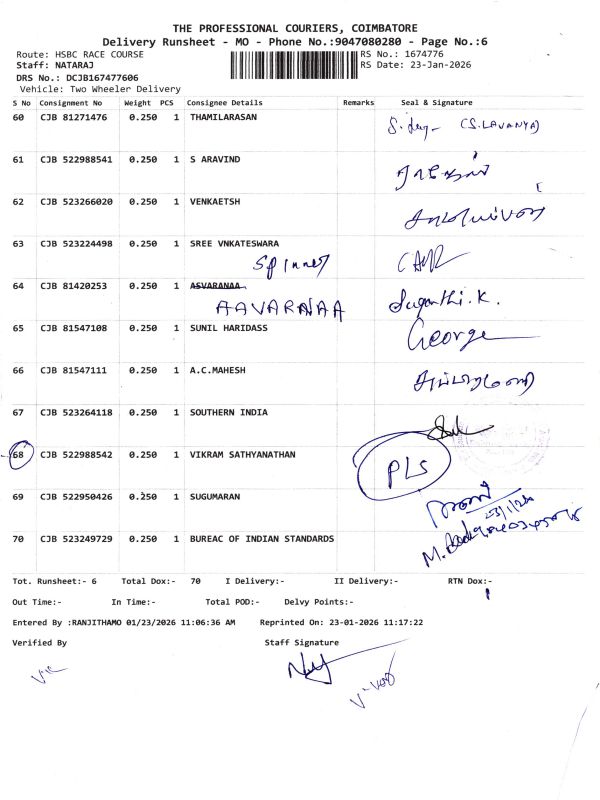 THE PROFESSIONAL COURIERS, COIMBATORE
Delivery Runsheet - MO - Phone No.:9047080280 - Page No.:6
Route: HSBC RACE COURSE RS No.: 1674776
Staff: NATARAJ RS Date: 23-Jan-2026
DRS No.: DCJB167477606
Vehicle: Two Wheeler Delivery
S No Consignment No Weight PCS Consignee Details Remarks Seal & Signature
60 CJB 81271476 0.250 1 THAMILARASAN (S.LAVANYA)
61 CJB 522988541 0.250 1 S ARAVIND
62 CJB 523266020 0.250 1 VENKAETSH
63 CJB 523224498 0.250 1 SREE VNKATESWARA
Spinney
64 CJB 81420253 0.250 1 ASVARANAA Suganthi.K.
AAVARANAA
65 CJB 81547108 0.250 1 SUNIL HARIDASS George
66 CJB 81547111 0.250 1 A.C.MAHESH
67 CJB 523264118 0.250 1 SOUTHERN INDIA
68 CJB 522988542 0.250 1 VIKRAM SATHYANATHAN PLS
69 CJB 522950426 0.250 1 SUGUMARAN
23/1/26
70 CJB 523249729 0.250 1 BUREAC OF INDIAN STANDARDS
Tot. Runsheet:- 6 Total Dox:- 70 I Delivery:- II Delivery:- RTN Dox:-
Out Time:- In Time:- Total POD:- Delvy Points:-
Entered By :RANJITHAMO 01/23/2026 11:06:36 AM Reprinted On: 23-01-2026 11:17:22
Verified By Staff Signature